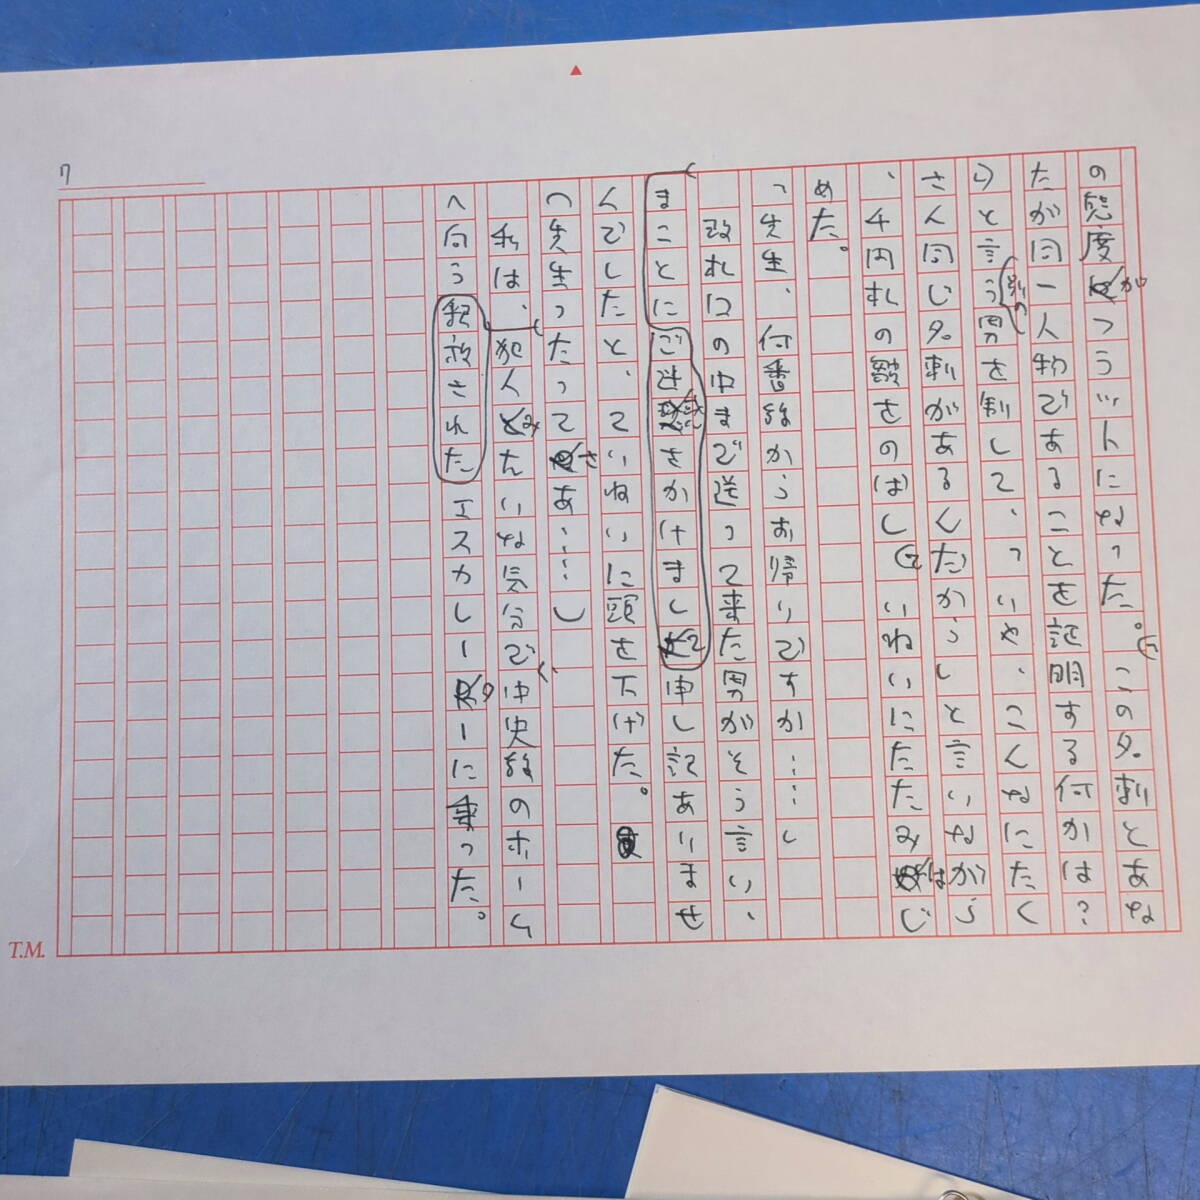 7
の態度がつうんトになった。「この名刺とあな
たが同一人物であることを証明する何かは?
」と言う別の男を制して、っいや、こんなにたく
さん同じ名刺があるんだからしと言いながら
、千円札の皺をのばしていねいにたたみはじ
めた。
「先生、何番線からお帰りですか……」
改札口の中まで送って来た男がそう言い、
まことにご迷惑をかけまして申し訳ありませ
んでしたと、ていねいに頭を下げた。
(先生ったってさあ……)
私は、犯人みたいな気分で、中央線のホーム
へ向う釈放されたエスカレーターに乗った。
T.M.